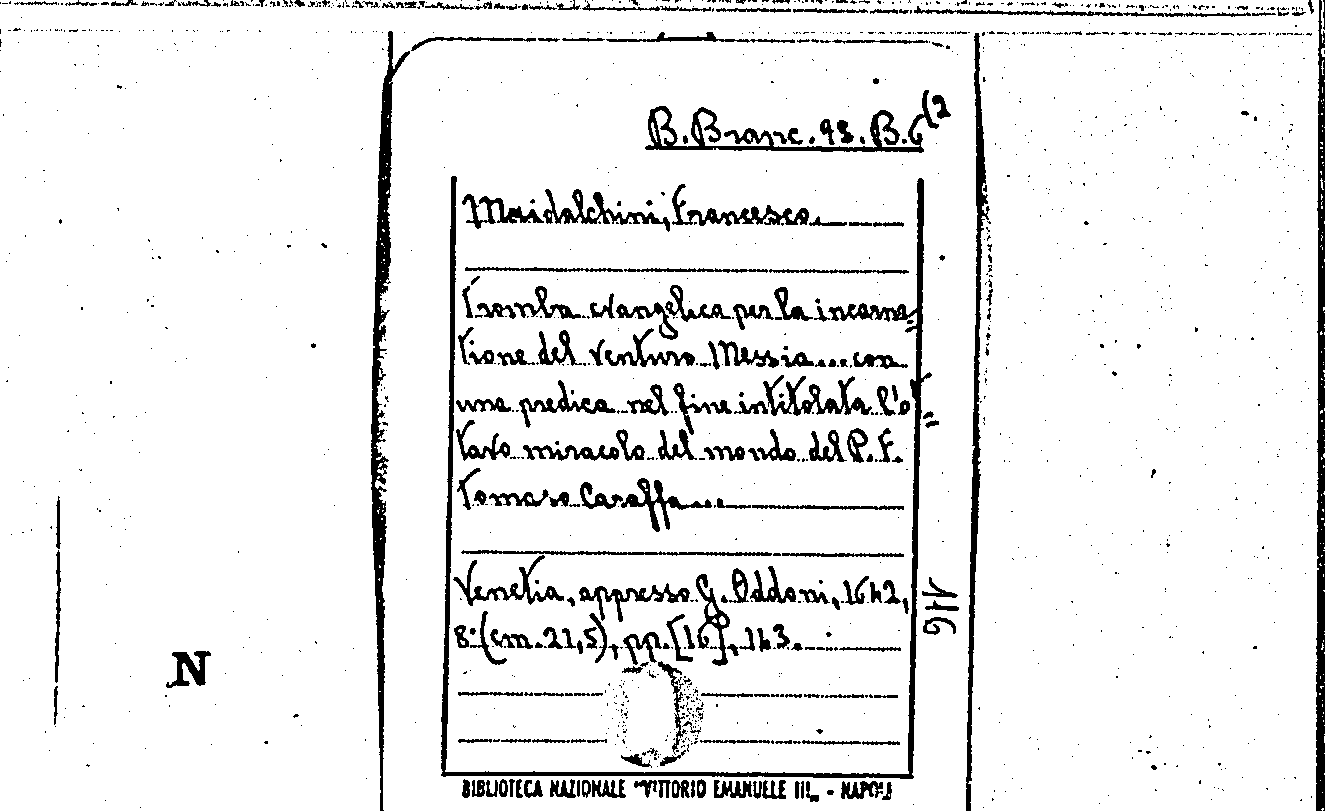 B. Branc. 93. B. 6 (2
Maidalchini, Francesco.
Tromba evangelica per la incarna=
tione del venturo Messia ... con
una predica nel fine intitolata l'ot=
tavo miracolo del mondo del P. F.
Tomaso Caraffa ...
Venetia, appresso G. Oddoni, 1642,
8° (cm. 21,5), pp. [16], 143.
116
N
BIBLIOTECA NAZIONALE "VITTORIO EMANUELE III„ - NAPOLI